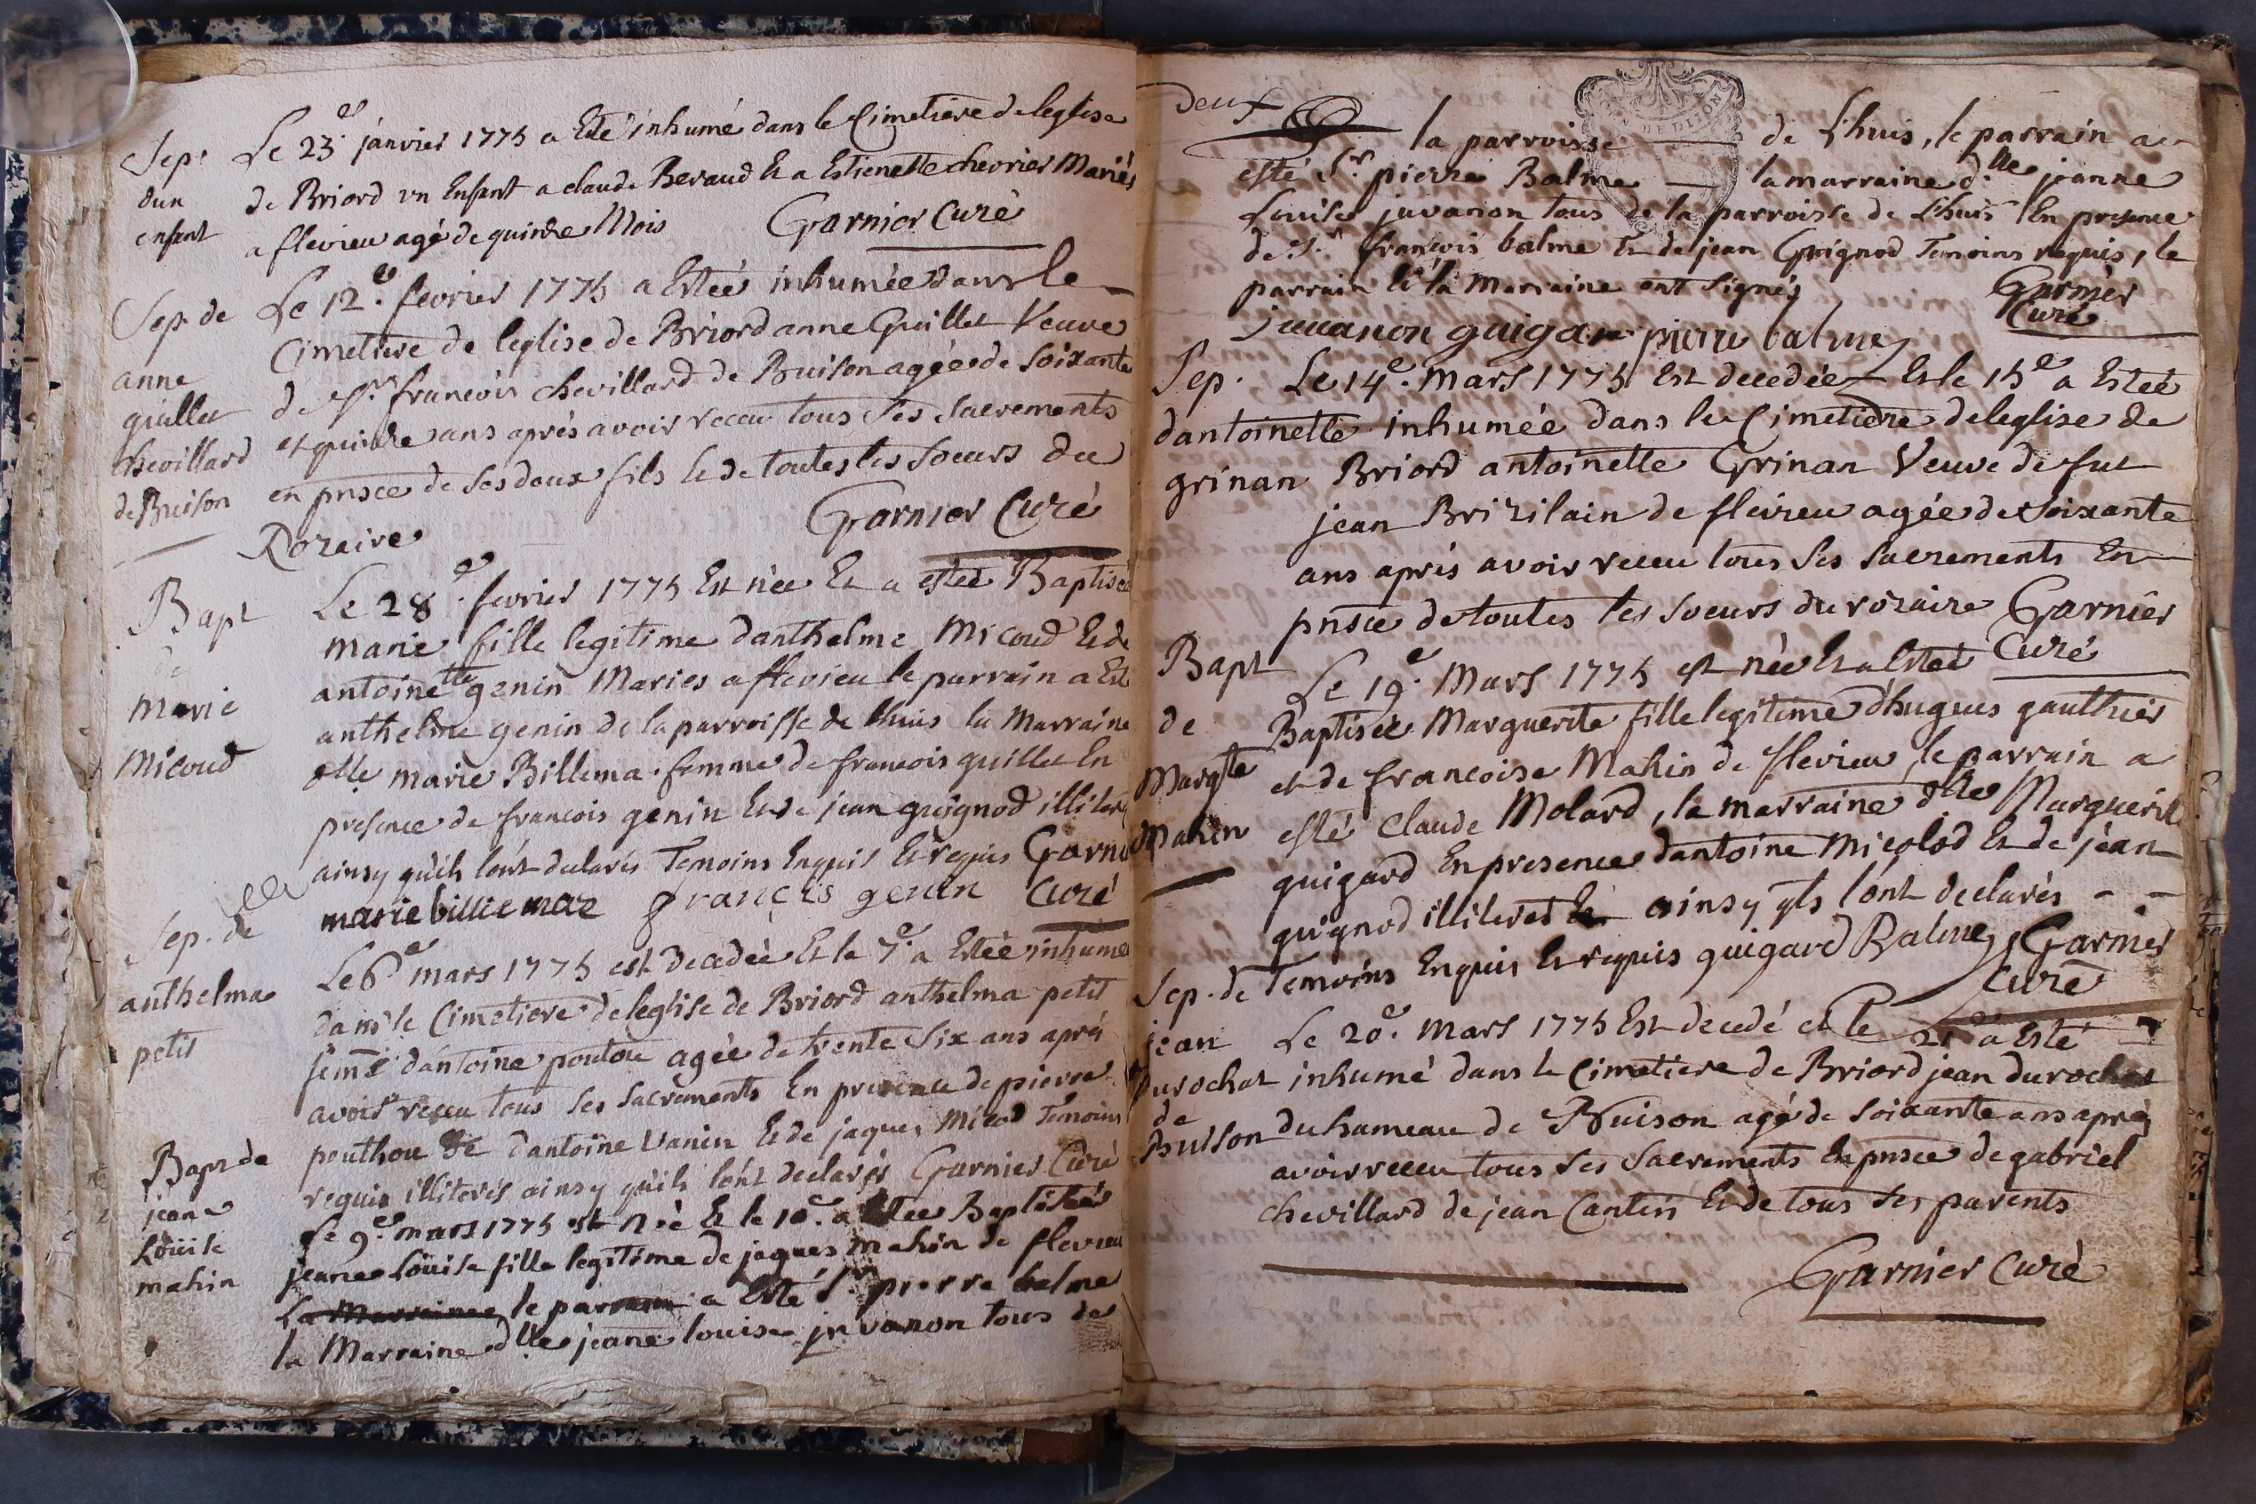 Sep.r
dun
enfant
Le 23.e janvier 1775 a Eté inhumé dans le Cimetiere de leglise
de Briord un Enfant a claude Beraud Et a Estienette chevrier Mariés
a flevieu agé de quinze Mois Garnier Curé
Sep. de
anne
guillet
chevillard
de Buison
Le 12.e fevrier 1775 a Estée inhumée dans le
Cimetiere de leglise de Briord anne Guillet Veuve
de Sr. francois chevillard de Buison agée de Soixante
et quinze ans aprés avoir receu tous Ses Sacrements
en pnsce de Ses deux fils Et de toutes les Soeurs du
Rozaire Garnier Curé
Bapt
de
marie
Micoud
Le 28.e fevrier 1775 Est née Et a estée Baptisée
marie fille legitime d'anthelme Micoud Et de
antoinette genin Maries a flevieu le parrain a Est
anthelme genin de la parroisse de lhuis la Marraine
elle marie Billema. femme de francois guillet En
presence de francois genin Et de jean guignod illiteré
ainsy quils lont declarés Temoins Enquis Et requis Garni
marie billiemaz françois genin Curé
Sep. de
anthelma
petit
Le 6e mars 1775 est decedée Et le 7.e a Estée inhumé
dans le Cimetiere de leglise de Briord anthelma petit
feme d'antoine poutou agée de trente Six ans aprés
avoir receu tous Ses Sacrements En presence de pierre
pouthou Et dantoine Vanin Et de jaques Micod Temoins
requis illiterés ainsy quils lont declarés Garnier Curé
Bapt de
jeane
Louise
mahin
Le 9.e mars 1775 est Née Et le 10.e a Estée Baptisée
jeane Louise fille legitime de jaques mahin de flevieu
La Marraine le parrain a Esté Sr. pierre balme
la Marraine dlle jeane louise juvanon tous de
deux
la parroisse de Lhuis, le parrain a
esté Sr. pierre Balme la marraine d.lle jeanne
Louise juvanon tous de la parroisse de Lhuis En presence
de Sr. françois balme Et de jean Guignod Temoins requis, le
parrain Et la Marraine ont Signés Garnier
Curé
juuanon guigar pierre balme
Sep.
dantoinette
grinan
Le 14e. Mars 1775 Est decedée Et le 15e a Estée
inhumée dans le Cimetiere de leglise de
Briord antoinette Grinan Veuve de fut
jean Brizilain de flevieu agée de Soixante
ans aprés avoir receu tous Ses Sacrements En
pnsce de toutes les Soeurs du rozaire Garnier
Curé
Bapt
de
Margte
Mahin
Le 19.e Mars 1775 est née Et a Esteé
Baptisée Marguerite fille legitime d'hugues gauthier
et de francoise Mahin de flevieu, le parrain a
esté Claude Molard, la marraine dlle Marguerite
guigard En presence dantoine Micolod Et de jéan
guignod illiterés Et ainsy qls lont declarés - -
Temoins Enquis Et requis guigard Balme Garnier
Curé
Sep. de
jean
Durochat
de
Buison
Le 20.e Mars 1775 Est decedé et Le 21e a Esté
inhumé dans le Cimetiere de Briord jean durochat
du hameau de Buison agé de Soixante ans aprés
avoir receu tous Ses Sacrements En pnsce de gabriel
chevillard de jean Cantin Et de tous Ses parents
Garnier Curé